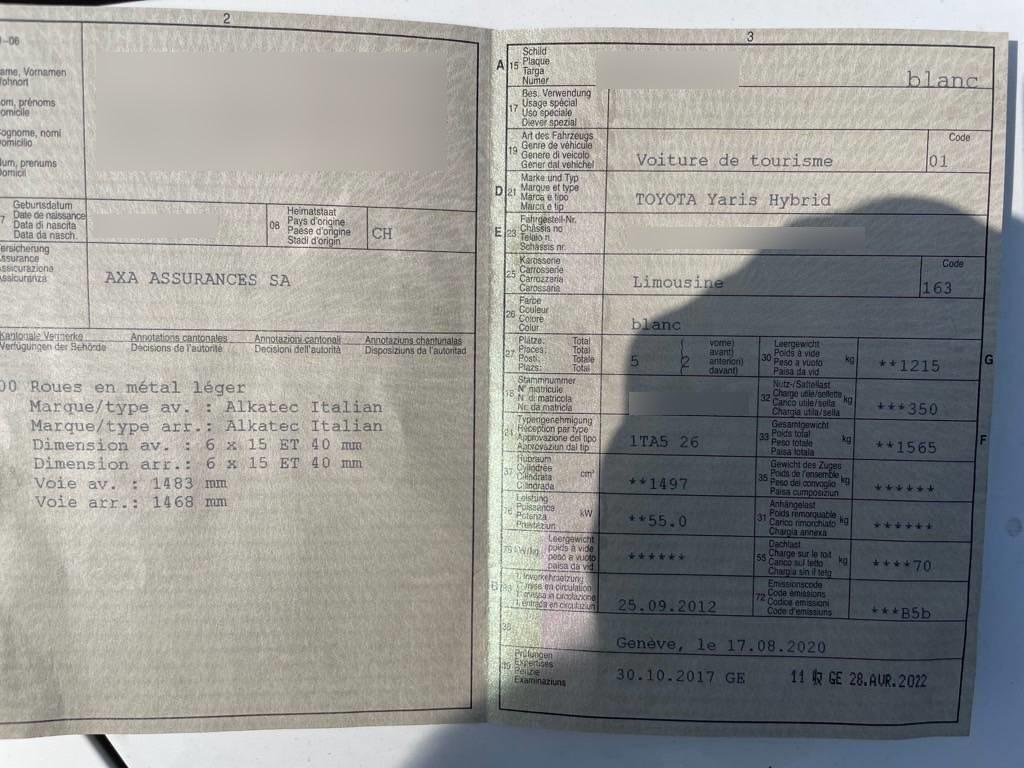 2
-06
ame, Vornamen
ohnort
om, prénoms
omicile
ognome, nomi
omicilio
um, prenums
omicil
7 Geburtsdatum
Date de naissance
Data di nascita
Data da nasch.
08 Heimatstaat
Pays d'origine
Paese d'origine
Stadi d'origin
CH
ersicherung
ssurance
ssicurazione
ssicuranza
AXA ASSURANCES SA
Kantonale Vermerke Annotations cantonales Annotazioni cantonali Annotaziuns chantunalas
Verfügungen der Behörde Décisions de l'autorité Decisioni dell'autorità Disposiziuns da l'autoritad
00 Roues en métal léger
Marque/type av. : Alkatec Italian
Marque/type arr.: Alkatec Italian
Dimension av. : 6 x 15 ET 40 mm
Dimension arr.: 6 x 15 ET 40 mm
Voie av. : 1483 mm
Voie arr.: 1468 mm
3
A 15 Schild
Plaque
Targa
Numer
blanc
17 Bes. Verwendung
Usage spécial
Uso speciale
Diever spezial
19 Art des Fahrzeugs
Genre de véhicule
Genere di veicolo
Gener dal vehichel
Voiture de tourisme
Code
01
D 21 Marke und Typ
Marque et type
Marca e tipo
Marca e tip
TOYOTA Yaris Hybrid
E 23 Fahrgestell-Nr.
Châssis no
Telaio n.
Schassis nr.
25 Karosserie
Carrosserie
Carrozzeria
Carossaria
Limousine
Code
163
26 Farbe
Couleur
Colore
Colur
blanc
27 Plätze: Total
Places: Total
Posti: Totale
Plazs: Total
5
(2
vorne)
avant)
anteriori)
davant)
30 Leergewicht
Poids à vide
Peso a vuoto
Paisa da vid
kg
**1215
G
18 Stammnummer
N° matricule
N. di matricola
Nr. da matricla
32 Nutz-/Sattellast
Charge utile/sellette
Carico utile/sella
Chargia utila/sella
kg
***350
24 Typengenehmigung
Réception par type
Approvazione del tipo
Approvaziun dal tip
1TA5 26
33 Gesamtgewicht
Poids total
Peso totale
Paisa totala
kg
**1565
F
37 Hubraum
Cylindrée
Cilindrata
Cilindrada
cm³
**1497
35 Gewicht des Zuges
Poids de l'ensemble
Peso del convoglio
Paisa cumposiziun
kg
******
76 Leistung
Puissance
Potenza
Prestaziun
kW
**55.0
31 Anhängelast
Poids remorquable
Carico rimorchiato
Chargia annexa
kg
******
78 kW/kg
Leergewicht
poids à vide
peso a vuoto
paisa da vid
******
55 Dachlast
Charge sur le toit
Carico sul tetto
Chargia sin il tetg
kg
****70
B 1. Inverkehrsetzung
1. mise en circulation
1. messa in circolazione
1. entrada en circulaziun
25.09.2012
72 Emissionscode
Code émissions
Codice emissioni
Code d'emissiuns
***B5b
38
Genève, le 17.08.2020
39 Prüfungen
Expertises
Perizie
Examinaziuns
30.10.2017 GE
11 GE 28.AVR.2022